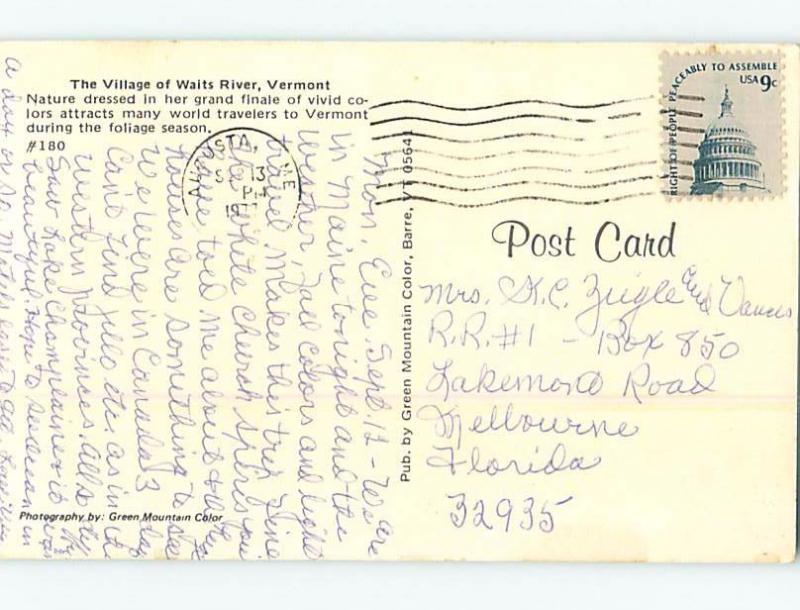 The Village of Waits River, Vermont
Nature dressed in her grand finale of vivid co-
lors attracts many world travelers to Vermont
during the foliage season.
#180
AUGUSTA, ME
13
PM
19
RIGHT OF PEOPLE PEACEABLY TO ASSEMBLE
USA 9c
Post Card
Pub. by Green Mountain Color, Barre, VT 05641
Mon. Eve. Sept. 12 - We are
in Maine tonight and the
weather, fall colors and light
travel makes this trip fine
the white church spires you
have told me about & the
houses are something to see
We were in Canada 3 days
Cant find jello etc. as in the
western provinces. Also
Saw Lake Champlain it was
beautiful. Hope to see ocean in
a day or so. Motels easy to get
Mrs. H.C. Zeigle and
R.R. #1 - Box 850
Lakemont Road
Melbourne
Florida
32935
Photography by: Green Mountain Color